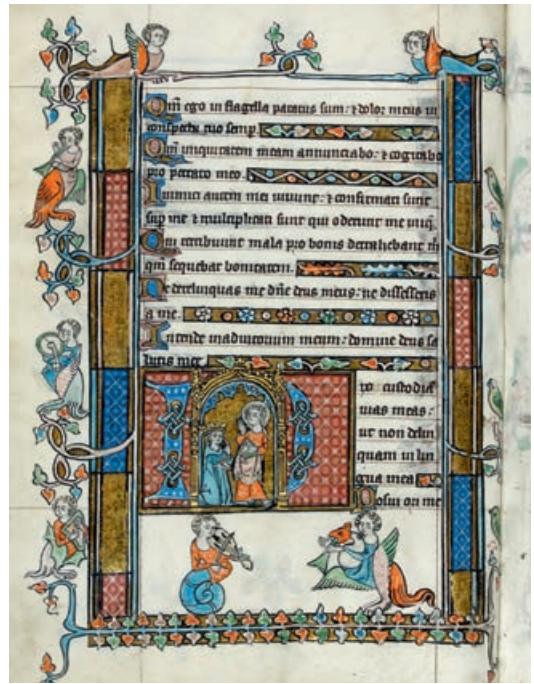 Qm̄ ego in flagella paratus sum: ⁊ dolor meus in
conspectu tuo semp.
Qm̄ iniquitatem meam annunciabo: ⁊ cogitabo
pro peccato meo.
Inimici autem mei uiuunt: ⁊ confirmati sunt
sup me ⁊ multiplicati sunt qui oderunt me iniq̄
Qui retribuunt mala pro bonis detrahebant m̄
qm̄ sequebar bonitatem.
Ne derelinquas me dn̄e deus meus: ne discesseris
a me.
Intende in adiutorium meum: domine deus sa
lutis mee.
custodiā
uias meas:
ut non delin
quam in lin
gua mea
Posui ori me